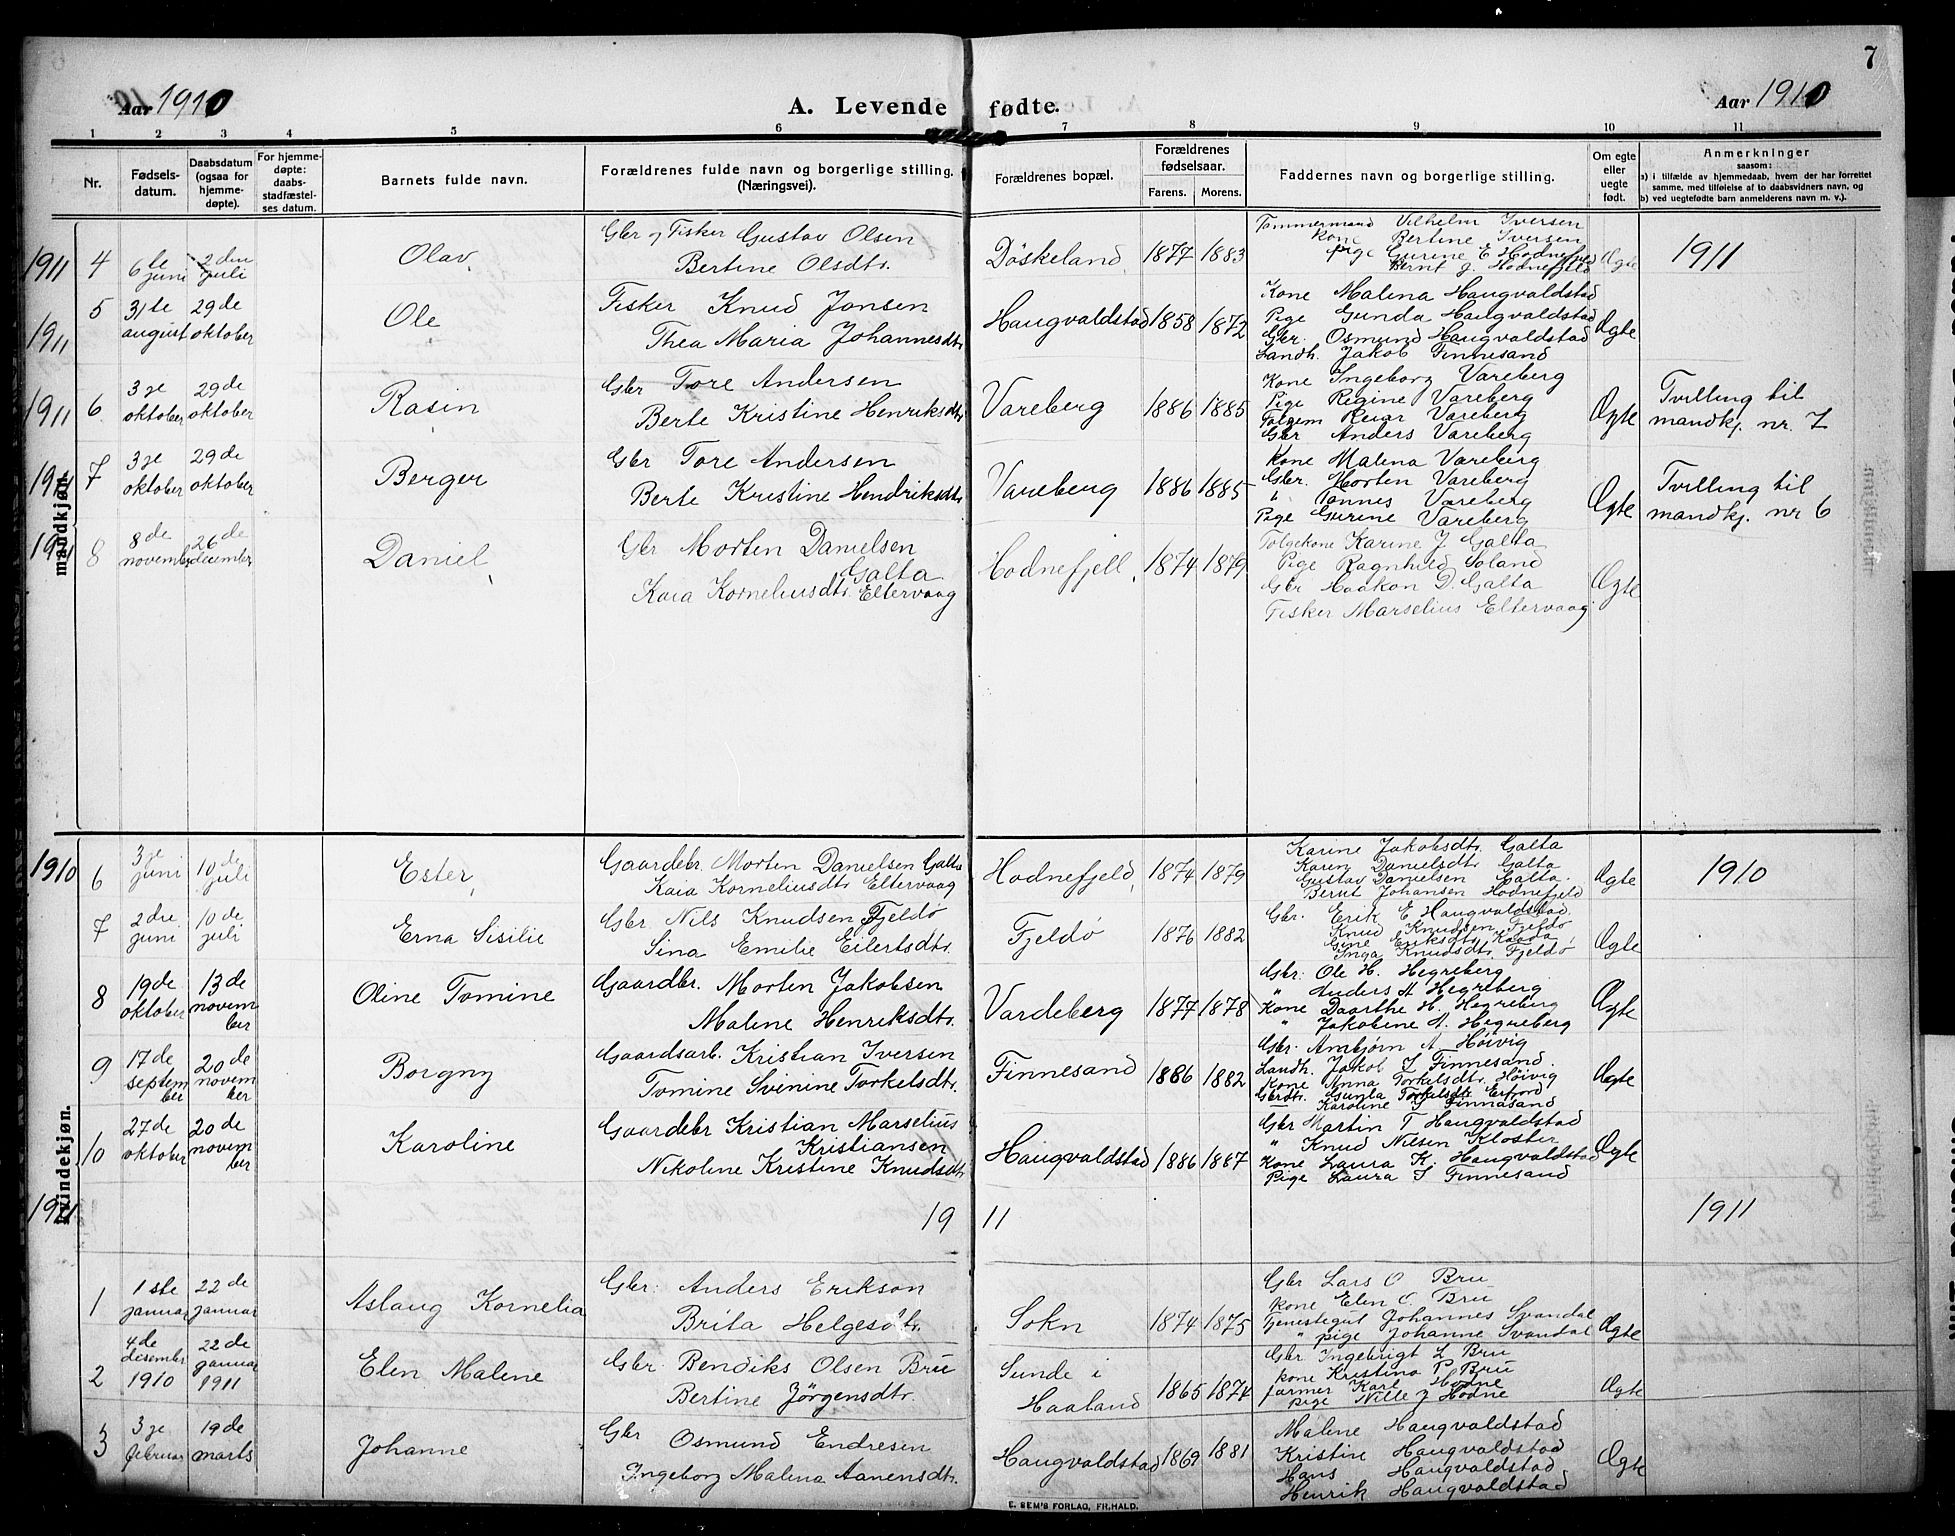 7
Aar 1910
A. Levende fødte.
Aar 1910
1 2 3 4 5 6 7 8 9 10 11
Nr.
Fødsels-
datum.
Daabsdatum
(ogsaa for
hjemme-
døpte).
For hjemme-
døpte:
daabs-
stadfæstel-
ses datum.
Barnets fulde navn.
Forældrenes fulde navn og borgerlige stilling.
(Næringsvei).
Forældrenes bopæl.
Forældrenes
fødselsaar.
Farens. Morens.
Faddernes navn og borgerlige stilling.
Om egte
eller
uegte
født.
Anmerkninger
saasom:
a) i tilfælde av hjemmedaab, hvem der har forrettet
samme, med tilføielse af to daabsvidners navn, og
b) ved uegtefødt barn anmelderens navn m. v.).
mandkjøn.
1911 4
6te
juni
2den
juli
Olav
Gbr og Fisker Gustav Olsen
Bertine Olsdtr.
Döskeland 1877 1883
Tømmermand Vilhelm Iversen
kone Bertine Iversen
pige Gurine E Hodnefjeld
Bernt J. Hodnefjeld
Ægte
1911
1911 5
31te
august
29de
oktober
Ole
Fisker Knud Jonsen
Thea Maria Johannesdtr
Haugvaldstad 1858 1872
Kone Malena Haugvaldstad
Pige Gunda Haugvaldstad
Gbr. Osmund Haugvaldstad
Landh. Jakob Finnesand
Ægte
1911 6
3je
oktober
29de
oktober
Rasin
Gbr Tore Andersen
Berte Kristine Henriksdtr
Vareberg 1886 1885
Kone Ingeborg Vareberg
Pige Regine Vareberg
Vareberg
Gbr Anders Vareberg
Ægte
Tvilling til
mandkj. nr. 7
1911 7
3je
oktober
29de
oktober
Berger
Gbr Tore Andersen
Berte Kristine Hendriksdtr
Vareberg 1886 1885
Kone Malena Vareberg
Gbr. Morten Vareberg
" Tønnes Vareberg
Pige Gurine Vareberg
Ægte
Tvilling til
mandkj. nr 6
1911 8
8de
november
26de
december
Daniel
Gbr Morten Danielsen
Galta
Kaia Korneliusdtr. Eltervaag
Hodnefjell 1874 1879
Tolgekone Karine J Galta
Pige Ragnhild Soland
Gbr Haakon D. Galta
Fisker Marselius Eltervaag
Ægte
Kvindekjøn.
1910 6
3je
juni
10de
juli
Ester
Gaardebr. Morten Danielsen Galta
Kaia Korneliusdtr Eltervaag
Hodnefjeld 1874 1879
Karine Jakobsdtr. Galta
Karen Danielsdtr Galta
Gustav Danielsen Galta
Bernt Johansen Hodnefjeld
Ægte
1910
7
2dre
juni
10de
juli
Erna Sisilie
Gbr Nils Knudsen Fjeldø
Sina Emilie Eilertsdtr.
Fjeldø 1876 1882
Gbr. Erik E Haugvaldstad
Knud Knudsen Fjeldø
Gine Eriksdtr
Inga Knudsdtr Fjeldø
Ægte
8
19de
oktober
13de
novem
ber
Oline Tomine
Gaardbr. Morten Jakobsen
Malene Henriksdtr.
Vardeberg 1877 1878
Gbr. Ole H. Hegreberg
" Anders A Hegreberg
Kone Daarthe H. Hegreberg
" Jakobine A. Hegreberg
Ægte
9
17de
septem
ber
20de
novem
ber
Borgny
Gaardsarb. Kristian Iversen
Tomine Svinine Torkelsdtr.
Finnesand 1886 1882
Gbr. Arnbjørn A Höivig
Landh. Jakob I Finnesand
Kone Anna Torkelsdtr. Höivig
Gbrdtr. Gunla Torkelsdtr Erfjord
Karoline I Finnesand
Ægte
10
27de
oktober
20de
novem
ber
Karoline
Gaardebr Kristian Marselius
Kristiansen
Nikoline Kristine Knudsdtr
Haugvaldstad 1886 1887
Gbr Martin T Haugvaldstad
" Knud Nilsen Kloster
Kone Laura K. Haugvaldstad
Pige Laura I Finnesand
Ægte
1911
19 11
1911
1
1ste
januar
22de
januar
Aslaug Kornelia
Gbr. Anders Erikson
Brita Helgesdtr.
Sokn 1874 1875
Gbr Lars O Bru
Kone Elen O. Bru
Tjenestegut Johannes Svandal
" pige Johanne Svandal
Ægte
2
4de
disember
1910
22de
januar
1911
Elen Malene
Gbr. Bendiks Olsen Bru
Bertine Jörgensdtr.
Sunde i
Haaland 1865 1874
Gbr Ingebrigt L Bru
kone Kristina P Bru
farmer Karl Hodne
pige Nille J Hodne
Ægte
3
3je
februar
19de
marts
Johanne
Gbr Osmund Endresen
Ingeborg Malena Aanensdtr.
Haugvaldstad 1869 1881
Malene Haugvaldstad
Kristine Haugvaldstad
Hans Haugvaldstad
Henrik Haugvaldstad
Ægte
E. SEM'S FORLAG, FR.HALD.